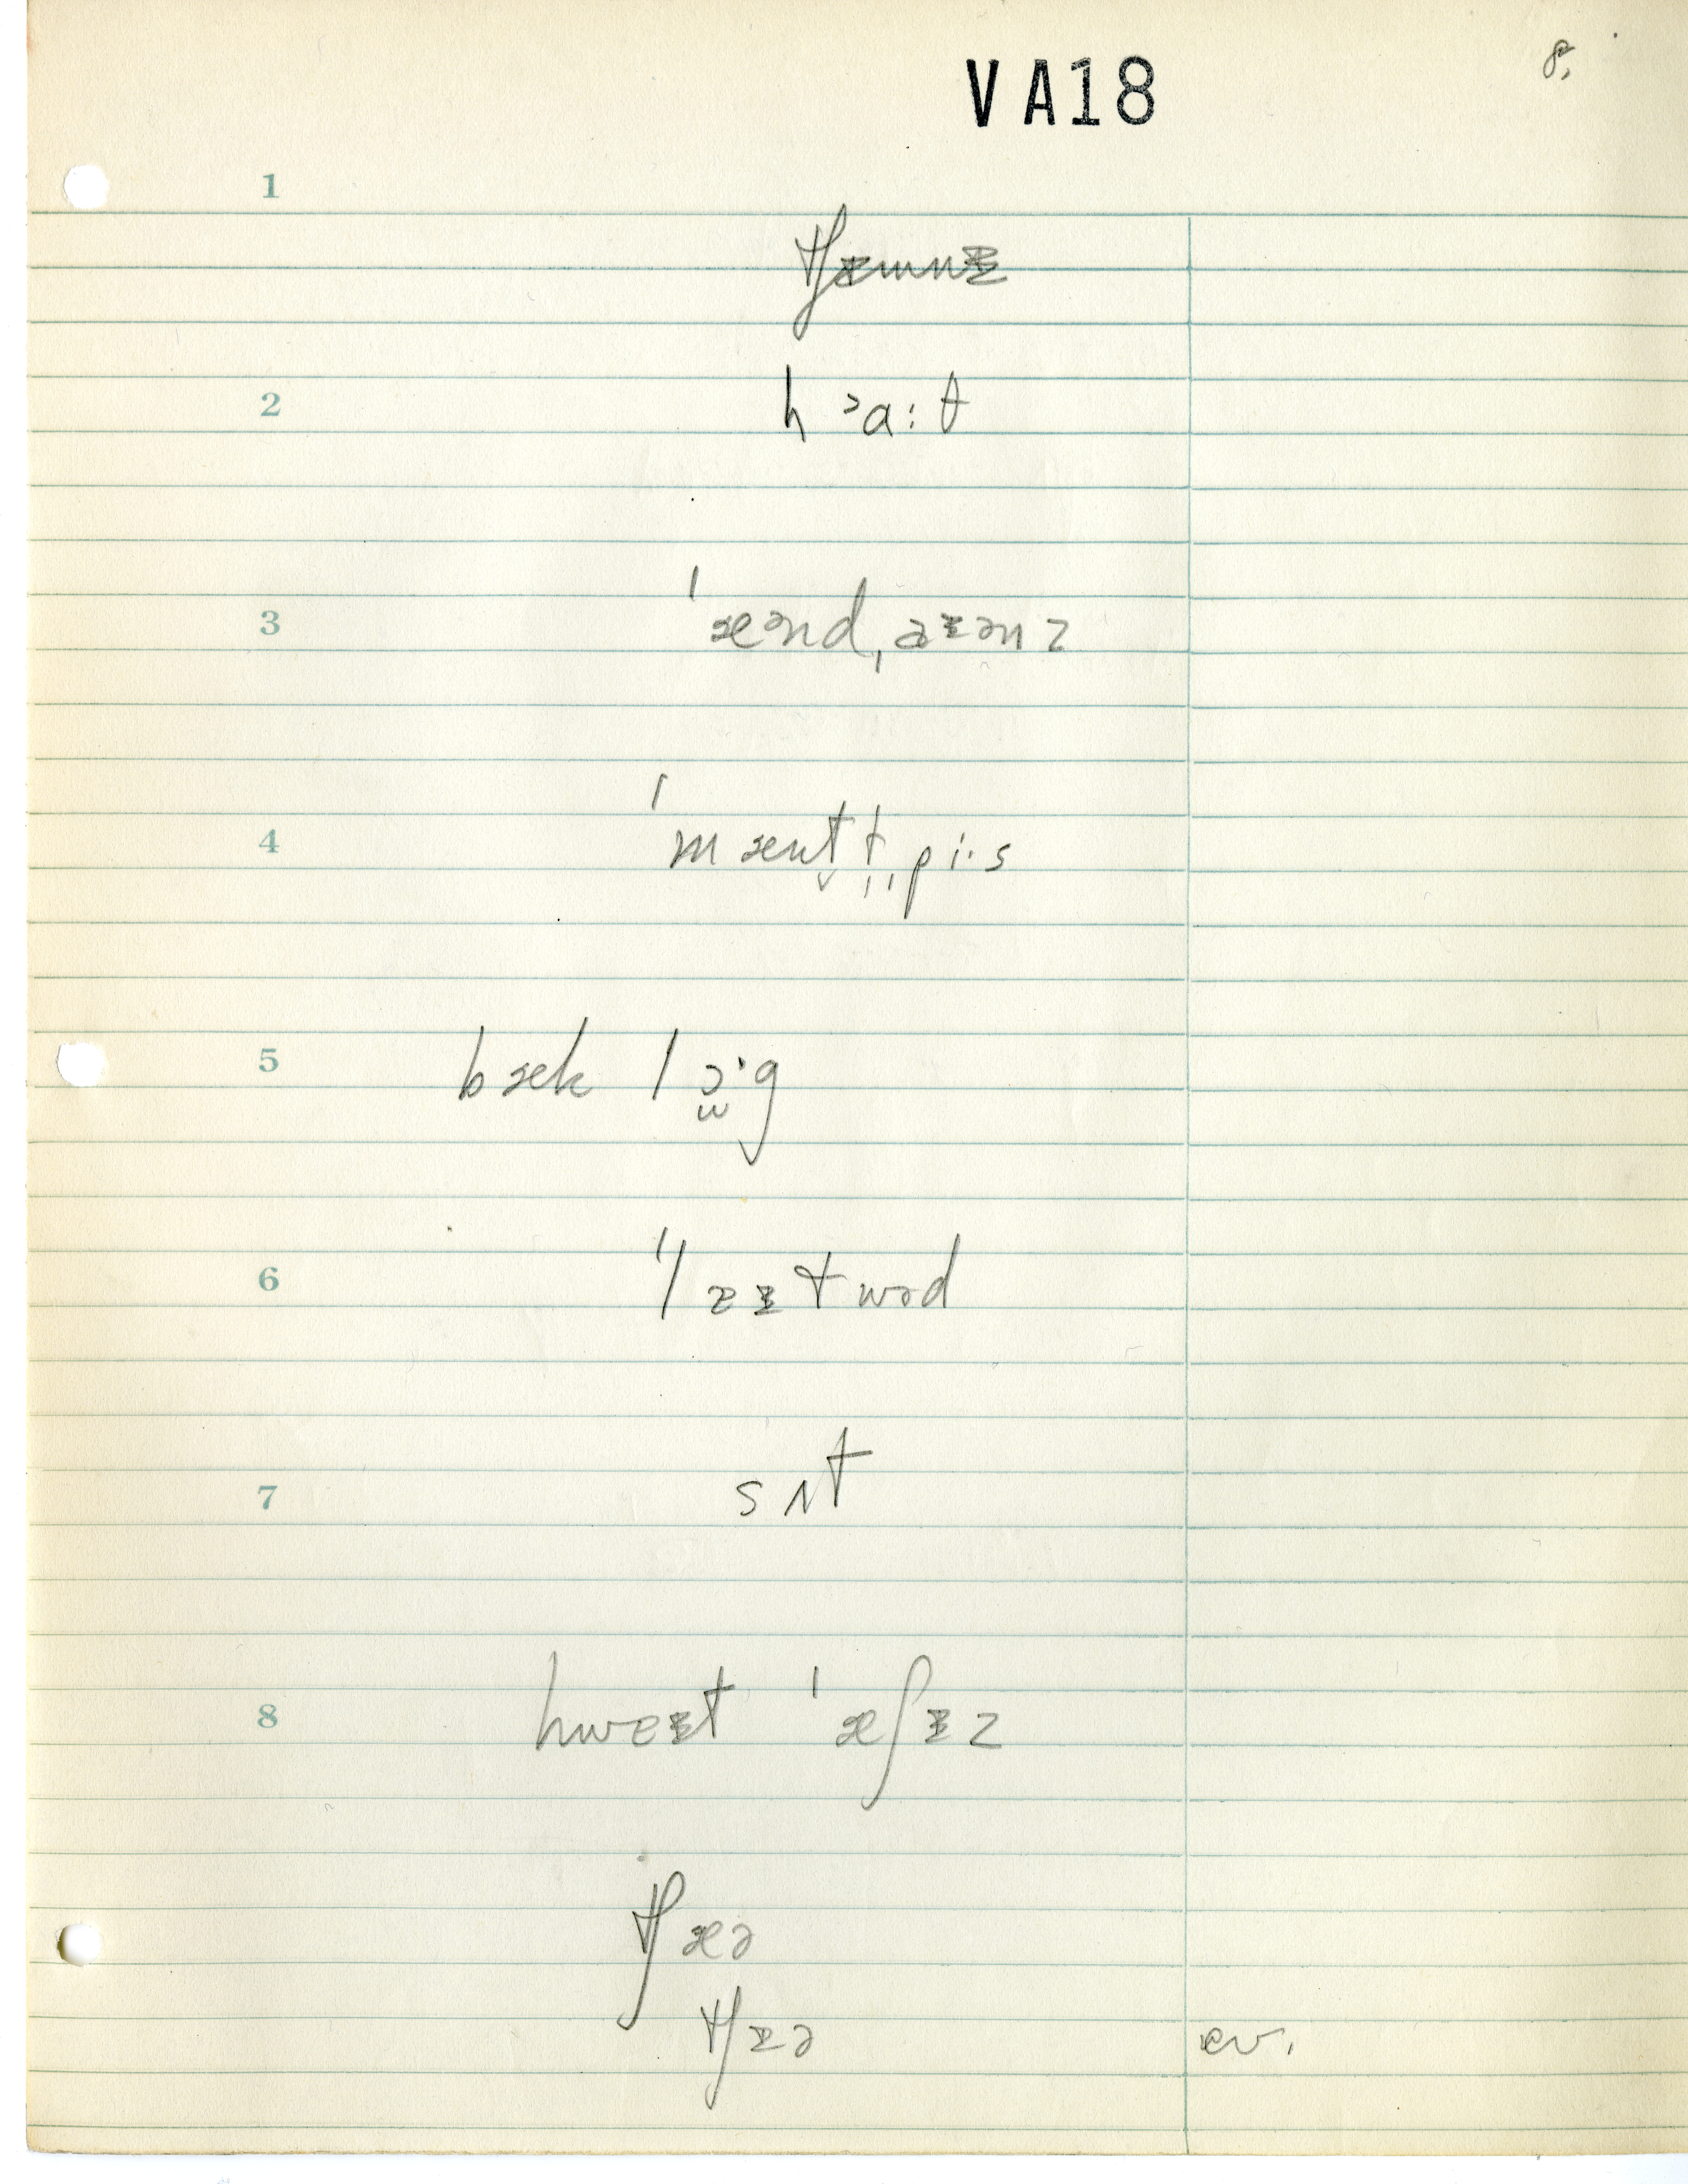 8.
V A18
1
tʃɪmnɪ
2
h ᵓa: t
3
ˈænd,aɪənz
4
ˈmæntt̩,pi·s
5
bæk lɔ̫·g
6
ˈlɛɪtwəd
7
sʌt
8
hwɛɪt ˈæʃɪz
tʃæə
tʃɪə
ev.